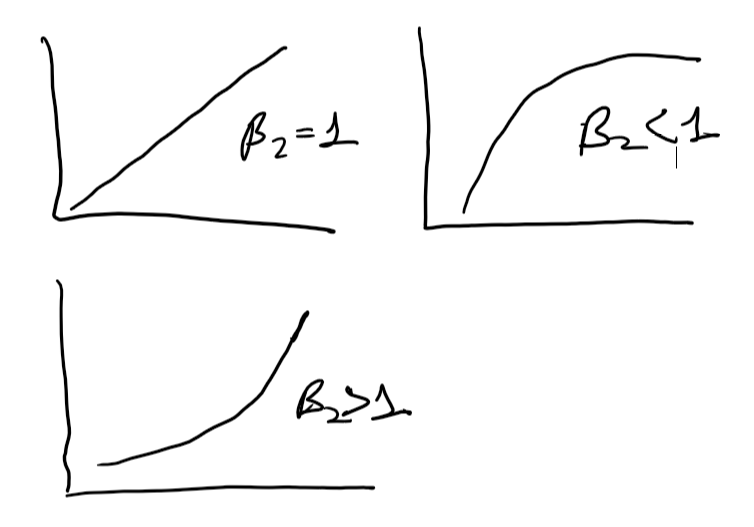 β₂ = 1
β₂ < 1
β₂ > 1